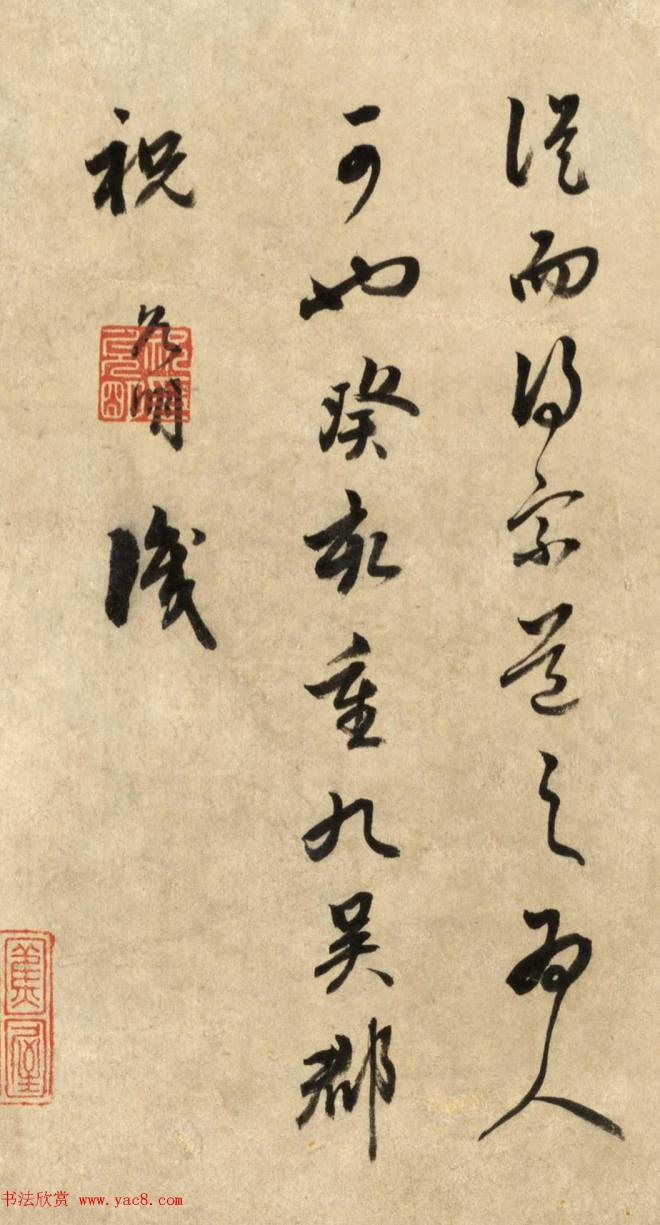 從而得宗道之為人
可也癸亥重九吳郡
祝允明識
书法欣赏 www.yac8.com